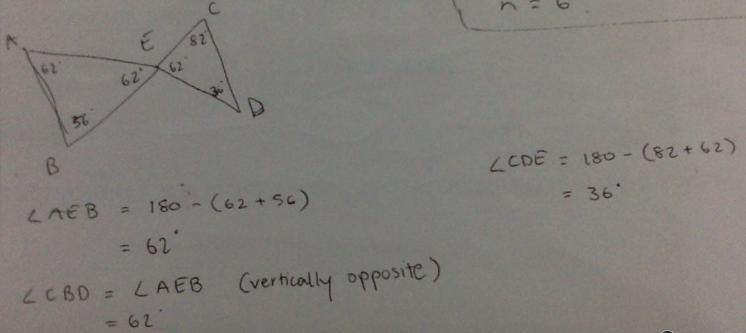 n = 6
C
A
E
82°
62°
62°
62°
36°
D
56°
B
∠CDE = 180 - (82 + 62)
= 36°
∠AEB = 180° - (62 + 56)
= 62°
∠CBD = ∠AEB (vertically opposite)
= 62°